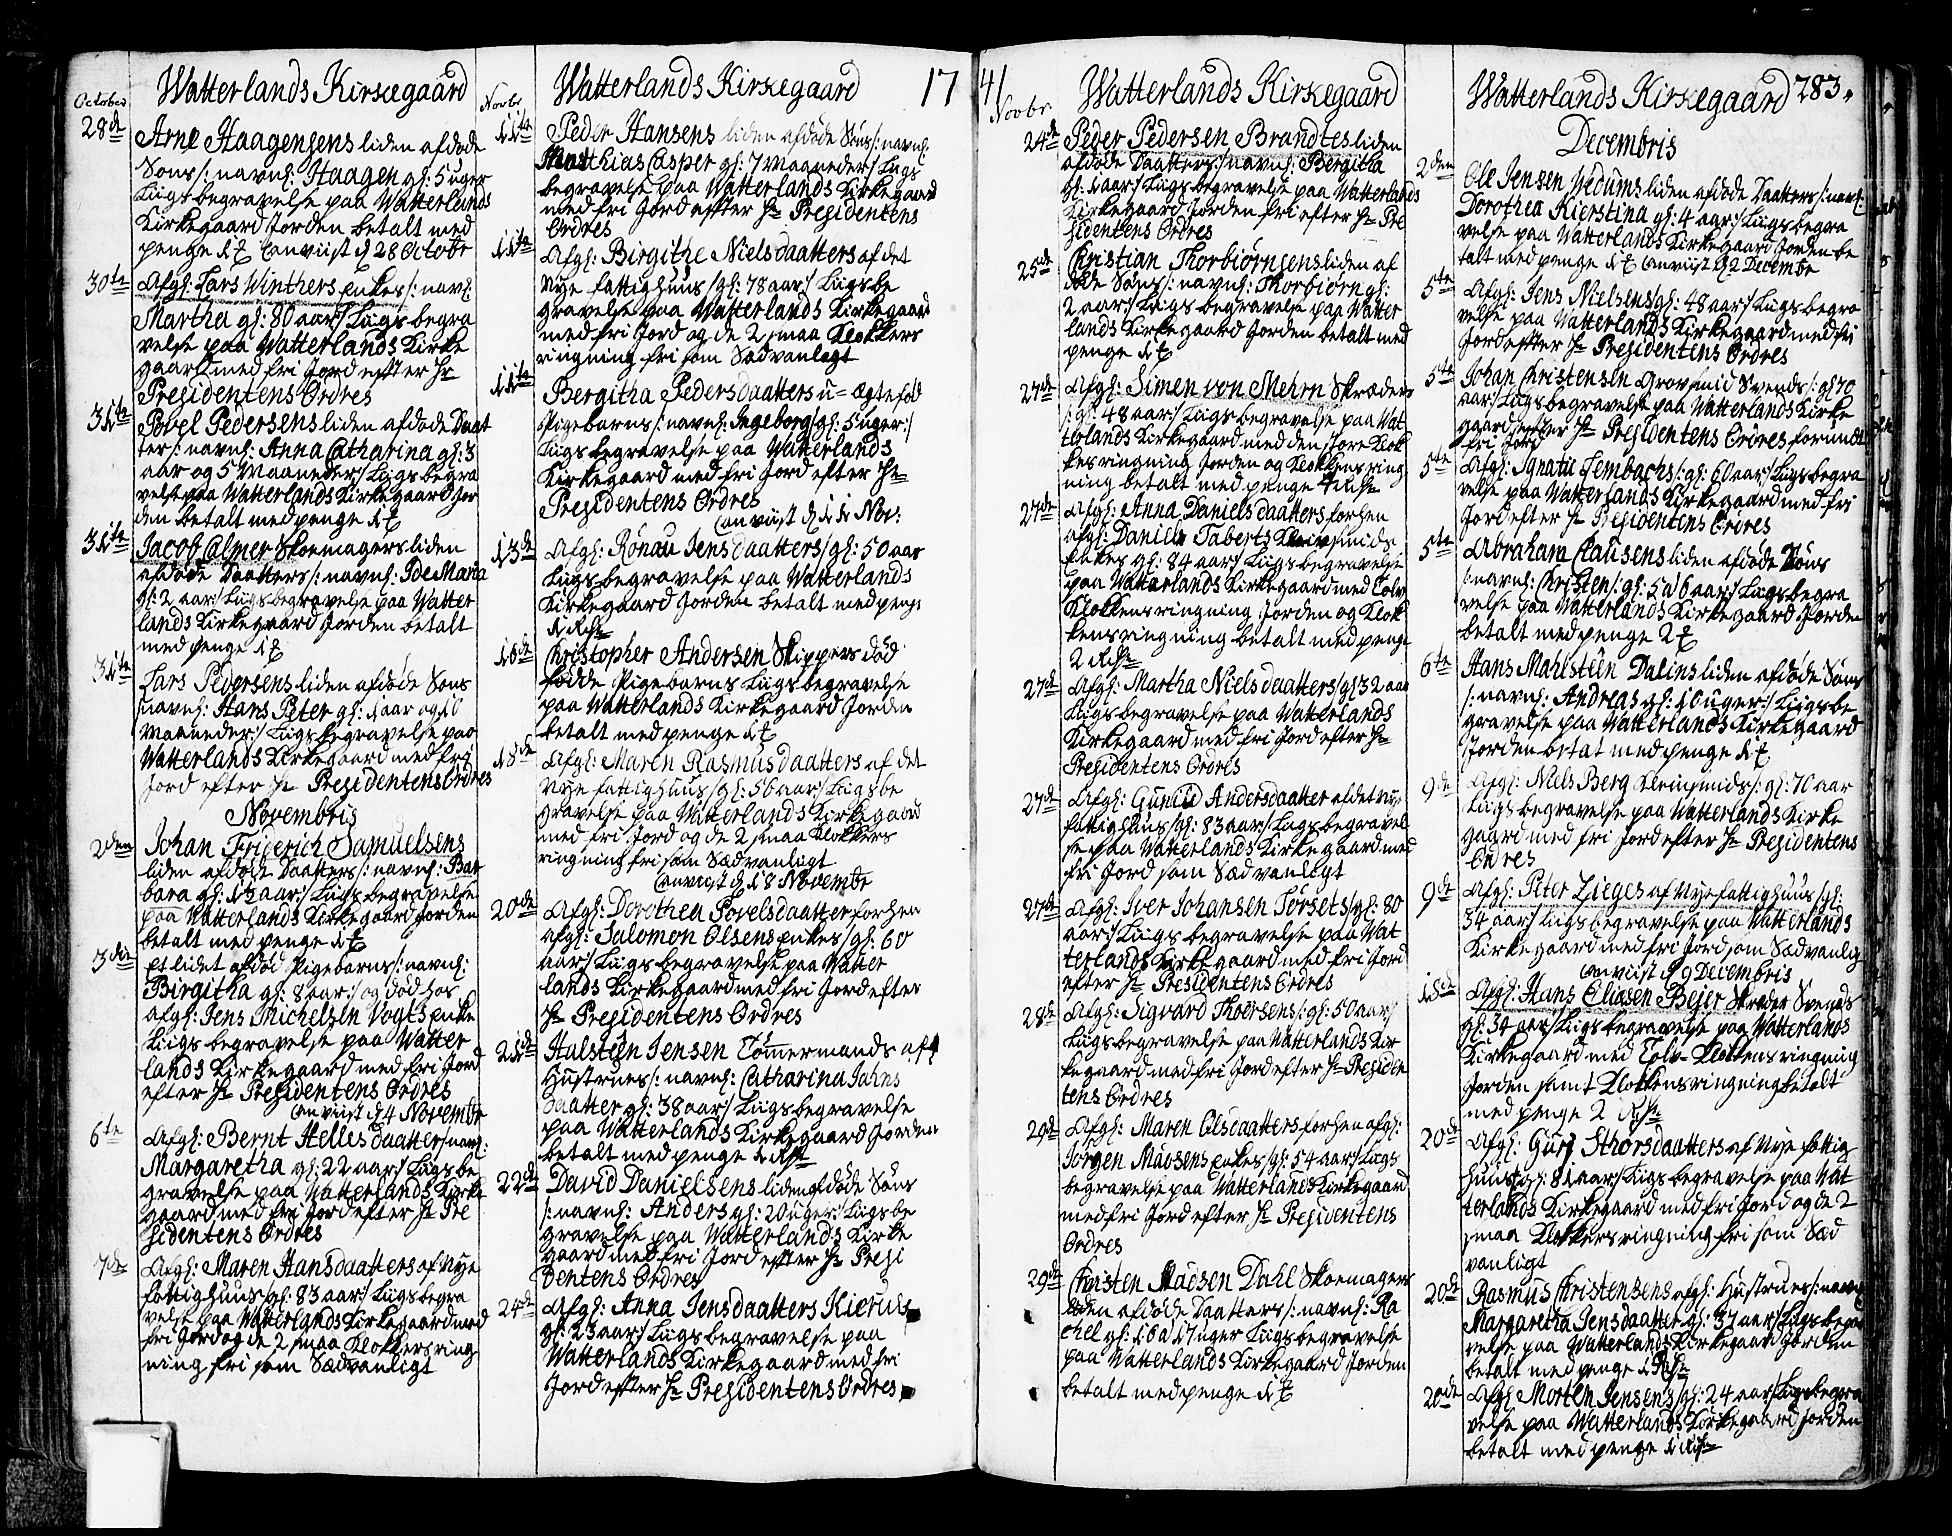 Watterlands Kirkegaard
October
28de
Arne Haagensens liden afdøde
Søns /: navnl: Haagen gl: 5 uger
Liigs begravelse paa Watterlands
Kirkegaard Jorden betalt med
penge
anviist d 28 Octobr
30te
Afgl: Lars Winthers Enkes /: navnl:
Martha gl: 80 aar :/ Liigs begra
velse paa Watterlands Kirke
gaard med fri Jord effter Hr
Presidentens Ordres
31te
Povel Pedersens liden afdøde Daat
ters /: navnl: Anna Catharina gl: 3
aar og 5 Maaneder :/ Liigs begra
velse paa Watterlands Kirkegaard Jor
den betalt med penge
31te
Jacob Calmer Skoemagers liden
afdøde Daatters /: navnl: Ide Maria
gl: 2 aar :/ Liigs begravelse paa Watter
lands Kirkegaard Jorden betalt
med penge
31te
Lars Pedersens liden afdøde Søns
/: navnl: Hans Peter gl: 1 aar og 10
Maaneder :/ Liigs begravelse paa
Watterlands Kirkegaard med fri
Jord efter Hr Presidentens Ordres
Novembris
2den
Johan Friderich Samuelsens
liden afdøde Daatters /: navnl: Bar
bara gl: 1½ aar :/ Liigs begravelse
paa Watterlands Kirkegaard Jorden
betalt med penge
3die
Et lidet afdød Pigebarns /: navnl:
Birgitha gl: 8 aar :/ og død hos
afgl: Jens Michelsen Vogts Enke
Liigs begravelse paa Watter
lands Kirkegaard med fri Jord
efter Hr Presidentens Ordres
anviist d 4 Novembr
6te
Afgl: Bernt Helles daatter /: navnl:
Margaretha gl: 22 aar :/ Liigs be
gravelse paa Watterlands Kirke
gaard med fri Jord efter Hr Pre
sidentens Ordres
7de
Afgl: Maren Hansdaatters af Nye
fattighuus gl: 83 aar :/ Liigs begra
velse paa Watterlands Kirkegaard med
fri Jord og de 2 smaa Klokkers ring
ning fri som Sædvanligt
Watterlands Kirkegaard 17
Novbr
11te
Peder Hansens liden afdøde Søns /: navnl:
Matthias Casper gl: 7 Maaneder :/ Liigs
begravelse paa Watterlands Kirkegaard
med fri Jord effter Hr Presidentens
Ordres
11te
Afgl: Birgithe Nielsdaatters af det
Nye fattighuus /: gl: 78 aar :/ Liigs be
gravelse paa Watterlands Kirkegaard
med fri Jord og de 2 smaa Klokkers
ringning fri som Sædvanlegt
11te
Bergitha Pedersdaatters u=ægtefød
Pigebarns /: navnl: Ingeborg /: gl: 5 uger :/
Liigs begravelse paa Watterlands
Kirkegaard med fri Jord efter Hr
Presidentens Ordres
anviist d 11 Nov:
13de
Afgl: Rønau Jensdaatters /: gl: 50 aar
Liigs begravelse paa Watterlands
Kirkegaard Jorden betalt med penge
1
16de
Christopher Andersen Skippers død
fødde Pigebarns Liigs begravelse
paa Watterlands Kirkegaard Jorden
betalt med penge
18de
Afgl: Maren Rasmusdaatters af det
Nye fattighuus /: gl: 56 aar :/ Liigs be
gravelse paa Watterlands Kirkegaard
med fri Jord og de 2 smaa Klokkers
ringning fri som Sædvanligt
anviist d 18 Novembr
20de
Afgl: Dorothea Povelsdaatter forhen
afgl: Salomon Olsens Enkes /: gl: 60
aar :/ Liigs begravelse paa Watter
lands Kirkegaard med fri Jord efter
Hr Presidentens Ordres
21de
Halsteen Jensen Tømmermands afg
Hustrues /: navnl: Catharina Jahns
daatter gl: 38 aar :/ Liigs begravelse
paa Watterlands Kirkegaard Jorden
betalt med penge
22de
David Danielsens liden afdøde Søns
/: navnl: Anders gl: 20 uger :/ Liigs be
gravelse paa Watterlands Kirke
gaard med fri Jord effter Hr Presi
dentens Ordres
24de
Afgl: Anna Jensdaatters Kierues
gl: 23 aar :/ Liigs begravelse paa
Watterlands Kirkegaard med fri
Jord effter Hr Presidentens Ordres
41 Watterlands Kirkegaard
Novbr
24de
Peder Pedersen Brandtes liden
afdøde Daatters /: navnl: Bergitha
gl: 1 aar :/ Liigs begravelse paa Watterlands
Kirkegaard Jorden fri efter Hr Pre
sidentens Ordres
25de
Christian Thorbiørnsens liden af
døde Søns /: navnl: Thorbiørn gl:
2 aar :/ Liigs begravelse paa Watter
lands Kirkegaard Jorden betalt med
penge
27de
Afgl: Simen von Mehrn Skræders
/: gl: 48 aar :/ Liigs begravelse paa Wat
terlands Kirkegaard med den store Klok
kes ringning Jorden og Klokkens ring
ning betalt med penge
27de
Afgl: Anna Danielsdaatters forhen
afgl: Daniel Taberts Kleinsmids
Enkes gl: 84 aar :/ Liigs begravelse
paa Watterlands Kirkegaard med Tolv
Klokkens ringning Jorden og Klok
kens ringning betalt med penge
2
27de
Afgl: Martha Nielsdaatters /: gl: 32 aar
Liigs begravelse paa Watterlands
Kirkegaard med fri Jord efter Hr
Presidentens Ordres
27de
Afgl: Gunild Andersdaatter af det Nye
fattighuus /: gl: 83 aar :/ Liigs begravel
se paa Watterlands Kirkegaard med
fri Jord som Sædvanligt
27de
Afgl: Iver Johansen Torsets /: gl: 80
aar :/ Liigs begravelse paa Wat
terlands Kirkegaard med fri Jord
efter Hr Presidentens Ordres
28de
Afgl: Sigvard Thoersens /: gl: 50 aar :/
Liigs begravelse paa Watterlands Kir
kegaard med fri Jord efter Hr Presiden
tens Ordres
29de
Afgl: Maren Olsdaatters forhen afgl:
Jørgen Madsens Enkes /: gl: 54 aar :/ Liigs
begravelse paa Watterlands Kirkegaard
med fri Jord efter Hr Presidentens
Ordres
29de
Christen Madsen Dahl Skoemagers
liden afdøde Daatters /: navnl: Ra
chel gl: 16 a 17 uger Liigs begravelse
paa Watterlands Kirkegaard Jorden
betalt med penge
Watterlands Kirkegaard 283.
Decembris
2den
Ole Jensen Wedums liden afdøde Daatters /: navnl:
Dorothea Kierstina gl: 4 aar :/ Liigs begra
velse paa Watterlands Kirkegaard Jorden be
talt med penge anviist d 2 Decembr
5te
Afgl: Jens Nielsens /: gl: 48 aar :/ Liigs begra
velse paa Watterlands Kirkegaard med fri
Jord effter Hr Presidentens Ordres
5te
Johan Christensen Grovsmid Svends /: gl 70
aar :/ Liigs begravelse paa Watterlands Kirke
gaard effter Hr Presidentens Ordres formedl
fri Jord
5te
Afgl: Ignatii Lembachs /: gl: 60 aar :/ Liigs begra
velse paa Watterlands Kirkegaard med fri
Jord efter Hr Presidentens Ordres
5te
Abraham Clausens liden afdøde Søns
/: navnl: Christen /: gl: 5 a 6 aar :/ Liigs begra
velse paa Watterlands Kirkegaard Jorden
betalt med penge 2
6te
Hans Mahlsteen Dalins liden afdøde Søns
/: navnl: Andreas gl: 16 uger :/ Liigs be
gravelse paa Watterlands Kirkegaard
Jorden betat med penge
9de
Afgl: Niels Berg Kleinsmids /: gl: 70 aar
Liigs begravelse paa Watterlands Kirke
gaard med fri Jord efter Hr Presidentens
Ordres
9de
Afgl: Peter Zieges af Nye fattighuus /: gl:
34 aar :/ Liigs begravelse paa Watterlands
Kirkegaard med fri Jord som Sædvanlig
anviist d 9 Decembris
15de
Afgl: Hans Eliasen Bejer Skræder Svends
gl: 34 aar :/ Liigs begravelse paa Watterlands
Kirkegaard med Tolv Klokkens ringning
Jorden samt Klokkens ringning betalt
med penge 2
20de
Afgl: Gurj Sthorsdaatters af Nye fattig
huus gl: 81 aar :/ Liigs begravelse paa Wat
terlands Kirkegaard med fri Jord og de 2
smaa Klokkers ringning fri som Sæd
vanligt
20de
Rasmus Christensens afgl: Hustrues /: navnl
Margaretha Jensdaatter gl: 37 aar :/ Liigs begra
velse paa Watterlands Kirkegaard Jorden
betalt med penge
20de
Afgl Morten Jensens /: gl: 24 aar :/ Liigs begra
velse paa Watterlands Kirkegaard Jorden
betalt med penge